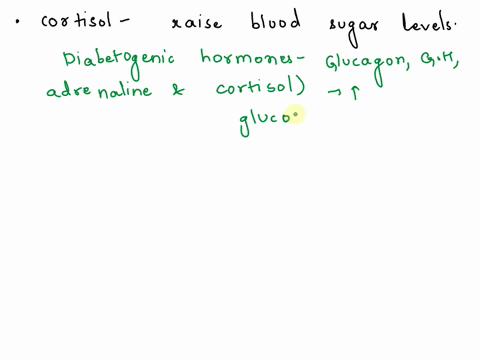 · cortisol - raise blood sugar levels.
Diabetogenic hormones - Glucagon, G.H,
adrenaline & cortisol) → ↑
gluco